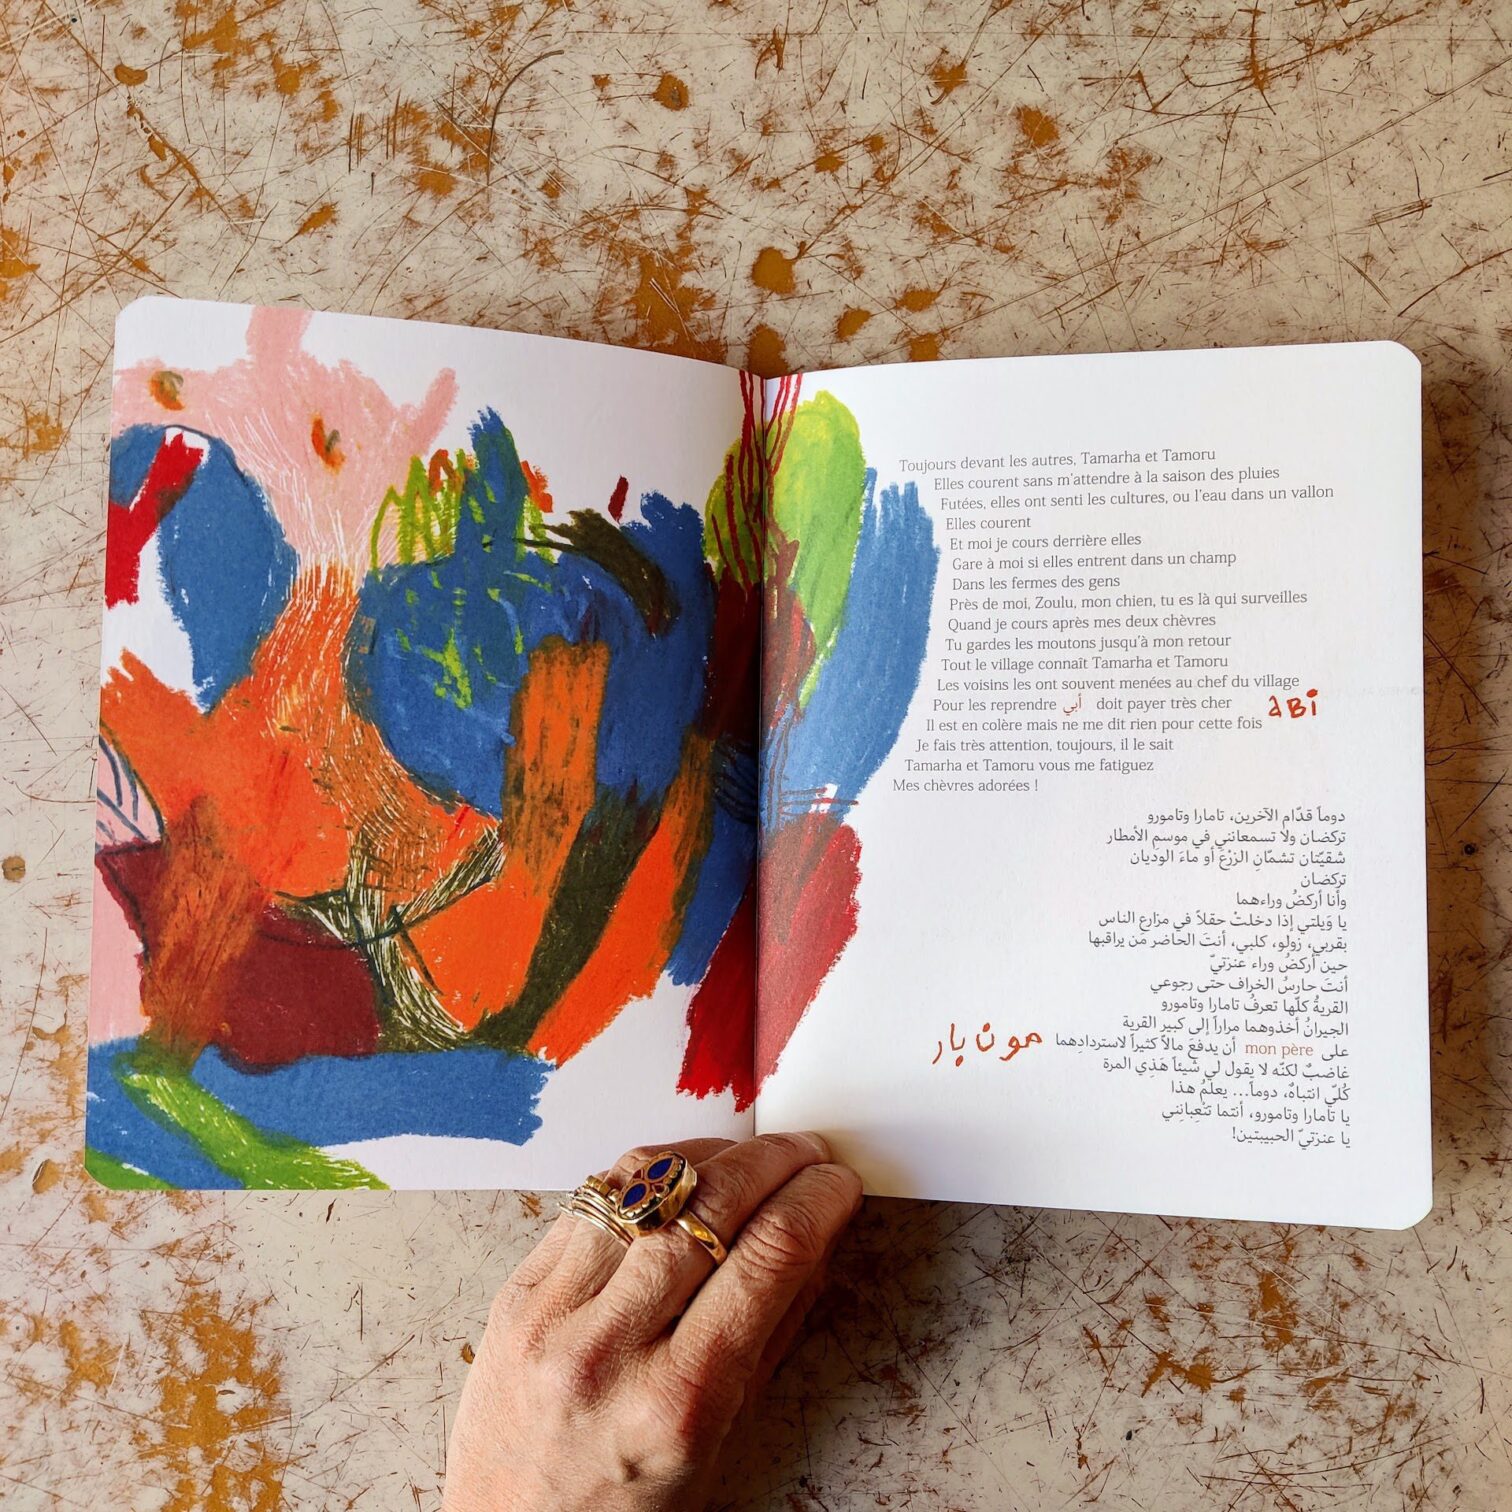 Toujours devant les autres, Tamarha et Tamoru
Elles courent sans m'attendre à la saison des pluies
Futées, elles ont senti les cultures, ou l'eau dans un vallon
Elles courent
Et moi je cours derrière elles
Gare à moi si elles entrent dans un champ
Dans les fermes des gens
Près de moi, Zoulu, mon chien, tu es là qui surveilles
Quand je cours après mes deux chèvres
Tu gardes les moutons jusqu'à mon retour
Tout le village connaît Tamarha et Tamoru
Les voisins les ont souvent menées au chef du village
Pour les reprendre أبي doit payer très cher aBi
Il est en colère mais ne me dit rien pour cette fois
Je fais très attention, toujours, il le sait
Tamarha et Tamoru vous me fatiguez
Mes chèvres adorées !
دوماً قدّام الآخرين، تامارا وتامورو
تركضان ولا تسمعانني في موسم الأمطار
شقيّتان تشمّانِ الزرْعَ أو ماءَ الوديان
تركضان
وأنا أركضُ وراءهما
يا وَيلتي إذا دخلتْ حقلاً في مزارع الناس
بقربي، زولو، كلبي، أنتَ الحاضر مَن يراقبها
حين أركضُ وراء عنزتيّ
أنتَ حارسُ الخراف حتى رجوعي
القريةُ كلّها تعرفُ تامارا وتامورو
الجيرانُ أخذوهما مراراً إلى كبيرِ القرية
على mon père أن يدفعَ مالاً كثيراً لاستردادِهما مون بار
غاضبٌ لكنّه لا يقول لي شيئاً هَذِي المرة
كُلّي انتباهٌ، دوماً... يعلمُ هذا
يا تامارا وتامورو، أنتما تتْعِبانِني
يا عنزتيّ الحبيبتين!